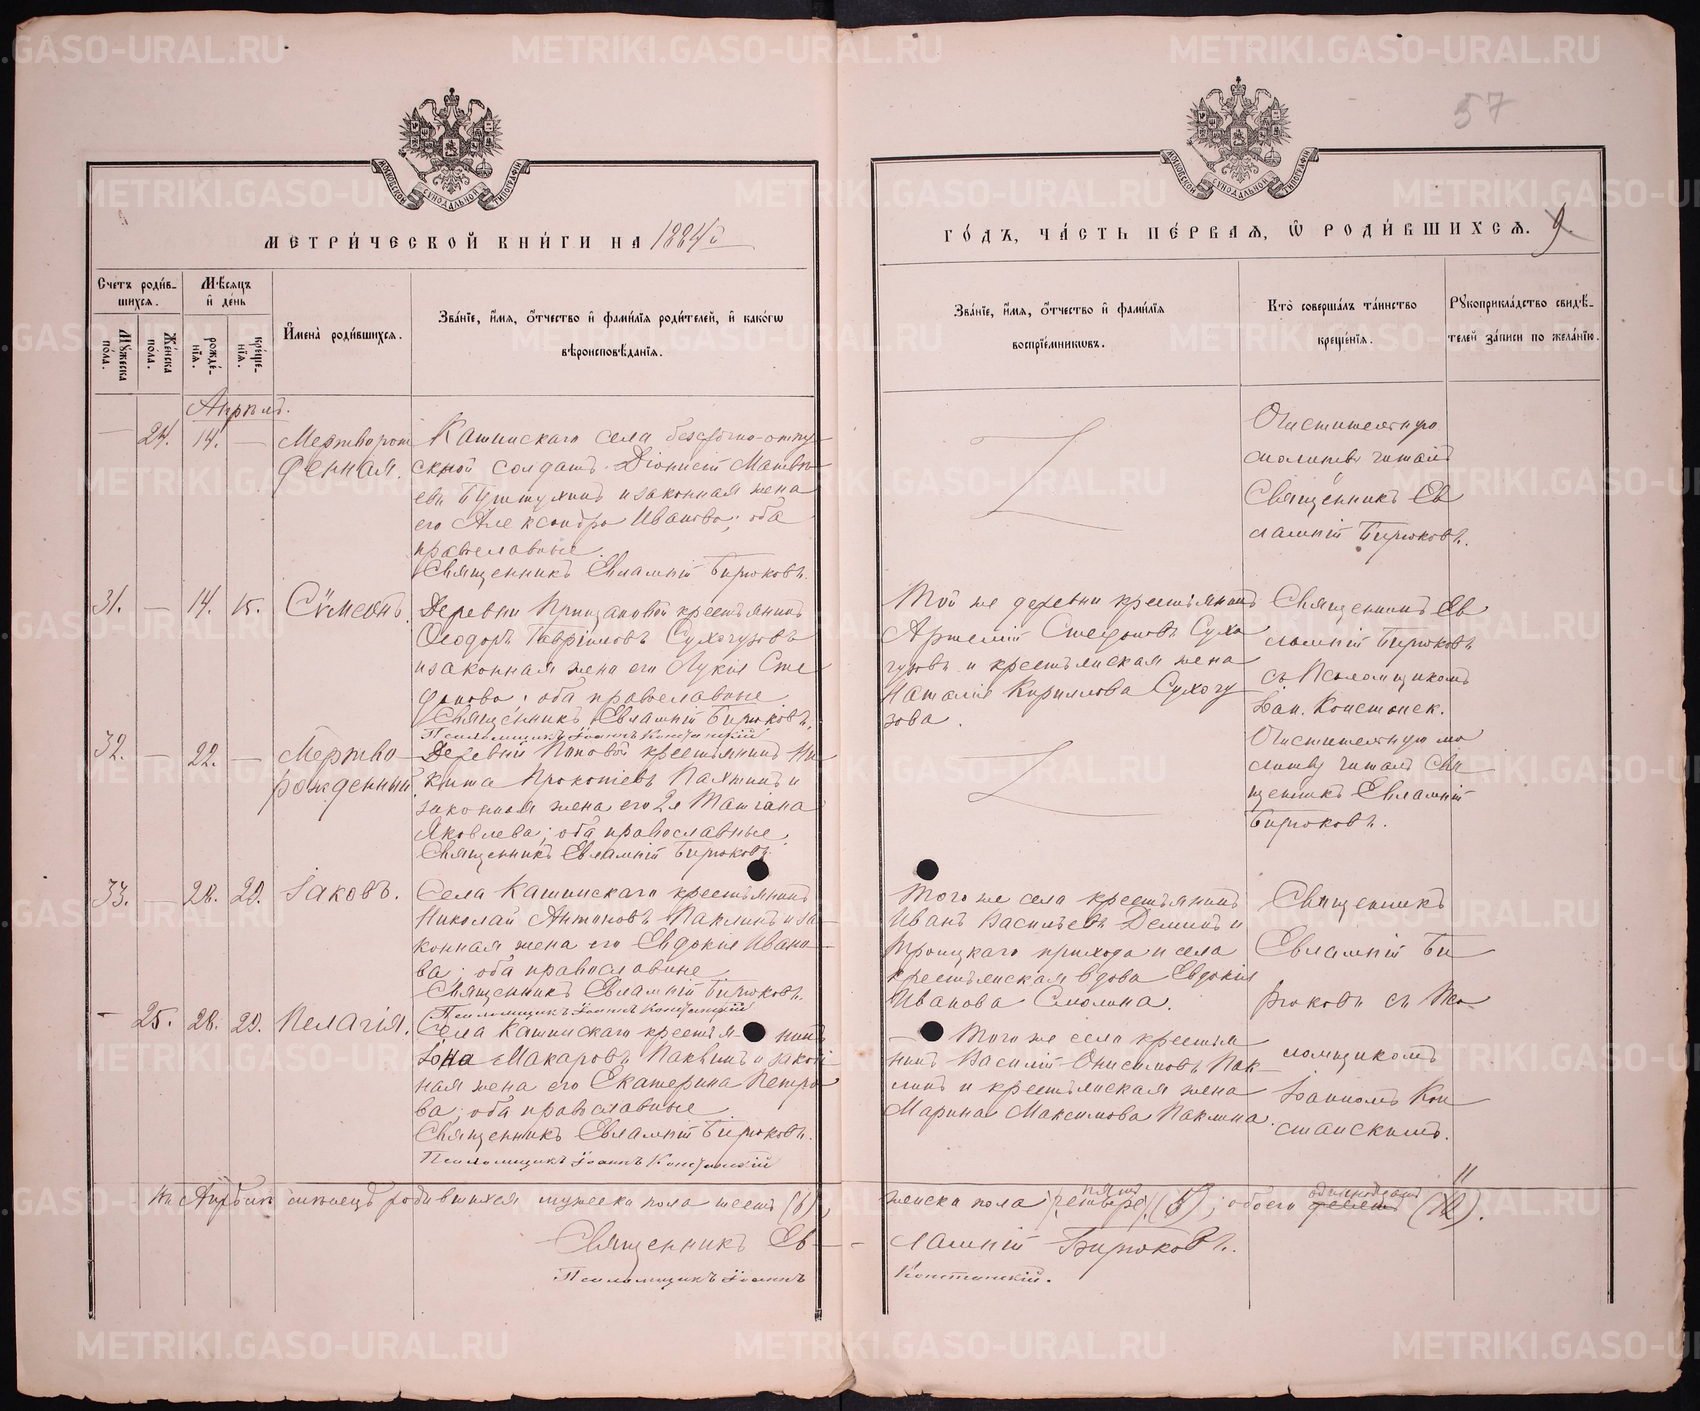 METRIKI.GASO-URAL.RU
57
МЕТРИ́ЧЕСКОЙ КНИ́ГИ НА 1884й
ГО́ДЪ, ЧА́СТЬ ПЕ́РВАѦ, Ѽ РОДИ́ВШИХСѦ. 9.
Счетъ роди́в-
шихсѧ.
Мꙋжеска пола.
Же́нска пола.
Мѣ́сѧцъ
и҆ де́нь
рожде́нїѧ.
креще́нїѧ.
И҆мена̀ роди́вшихсѧ.
Зва́нїе, и҆́мѧ, ѻ҆́тчество и҆ фами́лїѧ роди́телей, и҆ како́гѡ
вѣроисповѣ́данїѧ.
Зва́нїе, и҆́мѧ, ѻ҆́тчество и҆ фами́лїѧ
воспрїе́мникѡвъ.
Кто̀ соверша́лъ та́инство
креще́нїѧ.
Рꙋкоприкла́дство свидѣ́-
телей за́писи по жела́нїю.
Апрѣль.
— 24. 14. —
Мертворож
денная.
Кашинскаго села безсрочно-отпу-
скной солдатъ Діонисій Матвѣ-
евъ и законная жена
его Александра Иванова; оба
православные.
Священникъ Евлампій Бирюковъ.
Очистительную
молитву читалъ
Священникъ Ев
лампій Бирюковъ.
31. — 14. 15.
Сѷмеонъ.
Деревни крестьянинъ
Ѳеодоръ Гавріиловъ Сухогузовъ
и законная жена его Лукія Сте
фанова; оба православные
Священникъ Евлампій Бирюковъ.
Псаломщикъ Іоаннъ Констанскій
Той же деревни крестьянинъ
Артемій Стефановъ Сухо
гузовъ и крестьянская жена
Наталія Кириллова Сухогу
зова.
Священникъ Ев
лампій Бирюковъ
съ Псаломщикомъ
Іоан. Констанск.
32. — 22. —
Мертво
рожденный.
Деревни Поповой крестьянинъ Ни
кита Прокопіевъ и
законная жена его 2я Татіана
Яковлева; оба православные.
Священникъ Евлампій Бирюковъ.
Очистительную мо
литву читалъ Свя
щенникъ Евлампій
Бирюковъ.
33. — 28. 29.
Іаковъ.
Села Кашинскаго крестьянинъ
Николай Антоновъ Паклинъ и за
конная жена его Евдокія Ивано
ва; оба православные
Священникъ Евлампій Бирюковъ.
Псаломщикъ Іоаннъ Констанскій
Того же села крестьянинъ
Иванъ Васильевъ Деминъ и
Троицкаго прихода и села
крестьянская вдова Евдокія
Иванова Смолина.
Священникъ
Евлампій Би
рюковъ съ Пса
— 25. 28. 29.
Пелагія.
Села Кашинскаго крестья- нинъ
Іона Макаровъ Паклинъ и закон
ная жена его Екатерина Петро
ва; оба православные.
Священникъ Евлампій Бирюковъ.
Псаломщикъ Іоаннъ Констанскій
Того же села крестья
нинъ Василій Онисимовъ Пак-
линъ и крестьянская жена
Марина Максимова Паклина.
ломщикомъ
Іоанномъ Кон
станскимъ.
Въ Апрѣлѣ мѣсяцѣ родившихся мужеска пола шесть (6),
женска пола четыре пять (5); обоего десять одиннадцать 11 (10).
Священникъ Ев-
лампій Бирюковъ.
Псаломщикъ Іоаннъ
Констанскій.